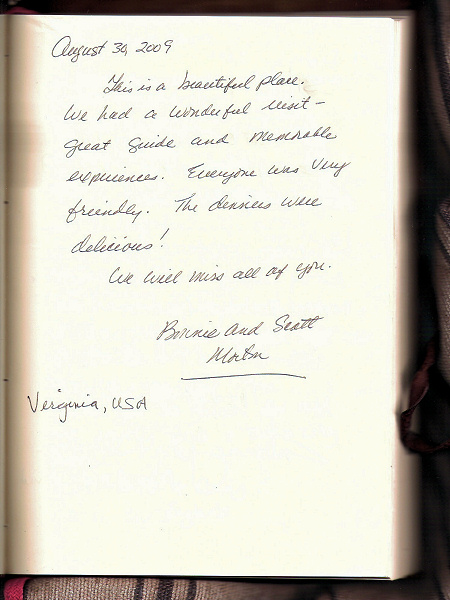 August 30, 2009
This is a beautiful place.
We had a wonderful visit –
great guide and memorable
experiences. Everyone was very
friendly. The dinners were
delicious!
We will miss all of you.
Bonnie and Scott
Morton
Virginia, USA